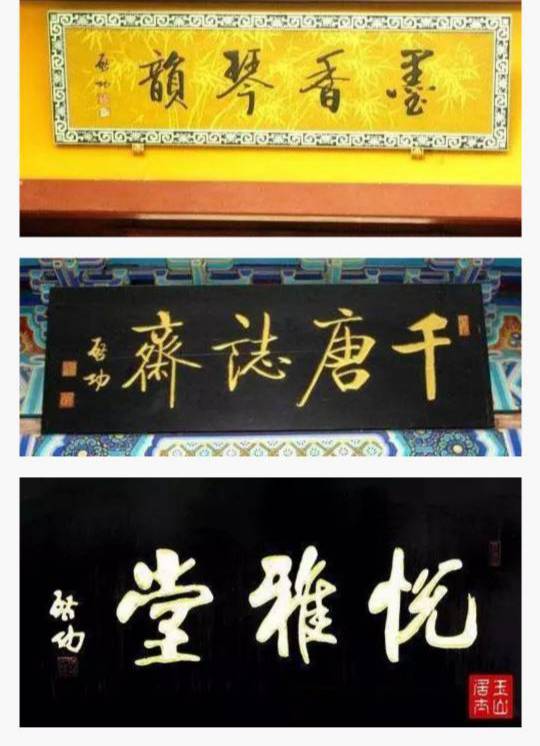 墨香琴韻
啟功
千唐誌齋
啟功
悦雅堂
啟功
玉山居士